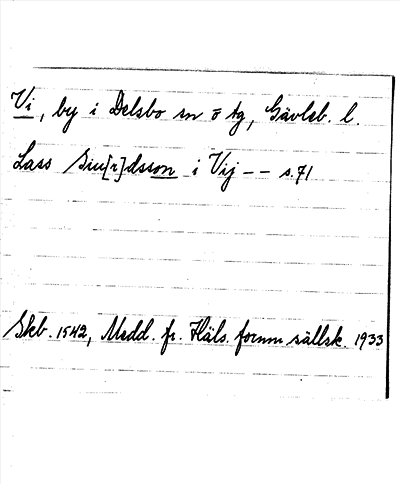 Vi, by i Delsbo sn o tg, Gävleb. l.
Lass Siu[r]dsson i Vij -- s. 71
Skb. 1542, Medd. fr. Häls. fornm sällsk. 1933